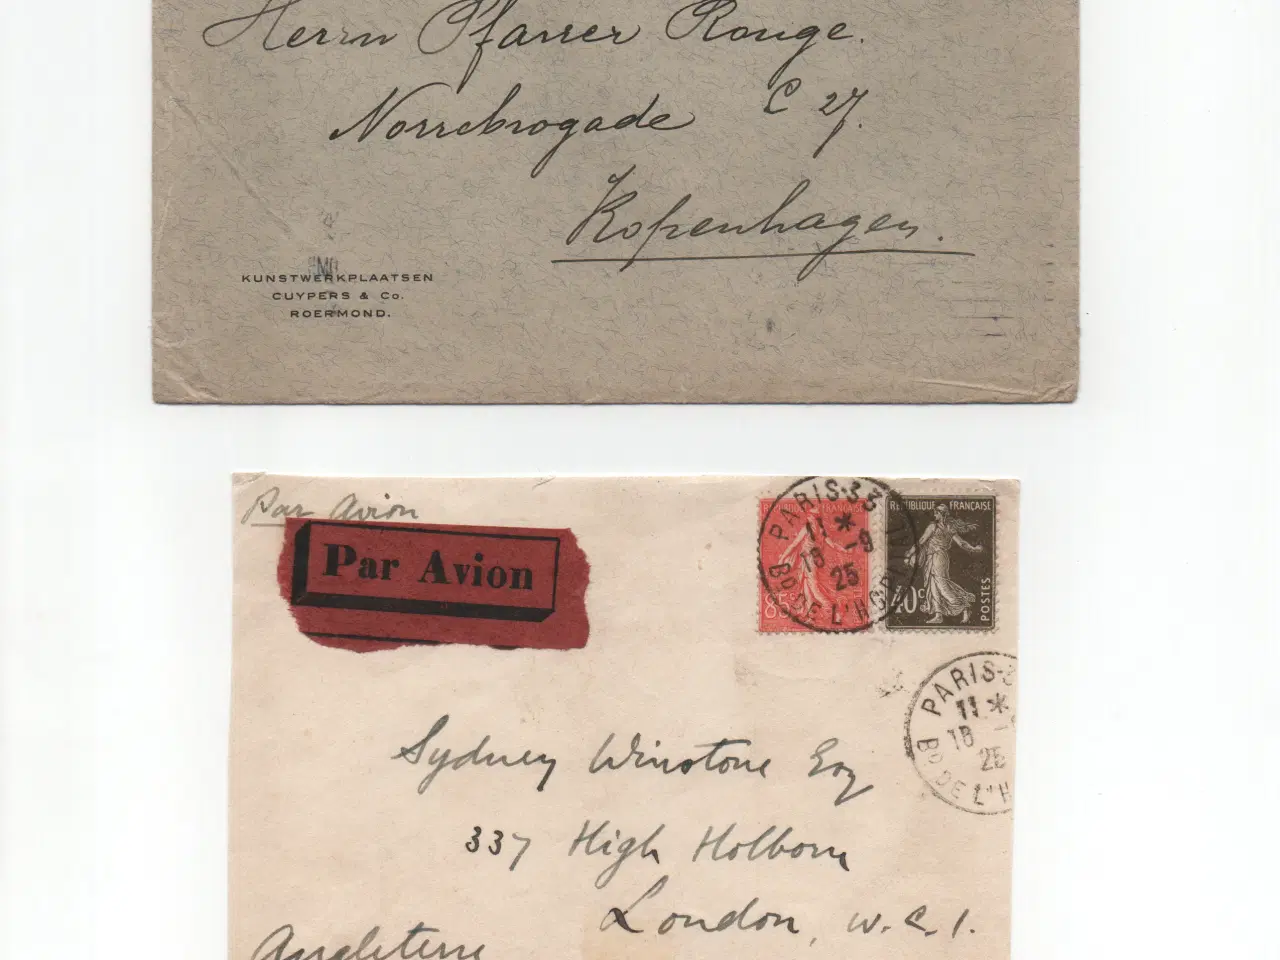 Herrn Pfarrer Ronge.
Norrebrogade C 27.
Kopenhagen.
KUNSTWERKPLAATSEN
CUYPERS & Co.
ROERMOND.
Par Avion
Par Avion
PARIS-33
11 *
18 -9
25
Bd DE L'HOPITAL
REPUBLIQUE FRANÇAISE
85c
REPUBLIQUE FRANÇAISE
40c
POSTES
PARIS-3
11 *
18 -
25
Bd DE L'H
Sydney Winstone Esq
337 High Holborn
London, W.C.1.
Angleterre